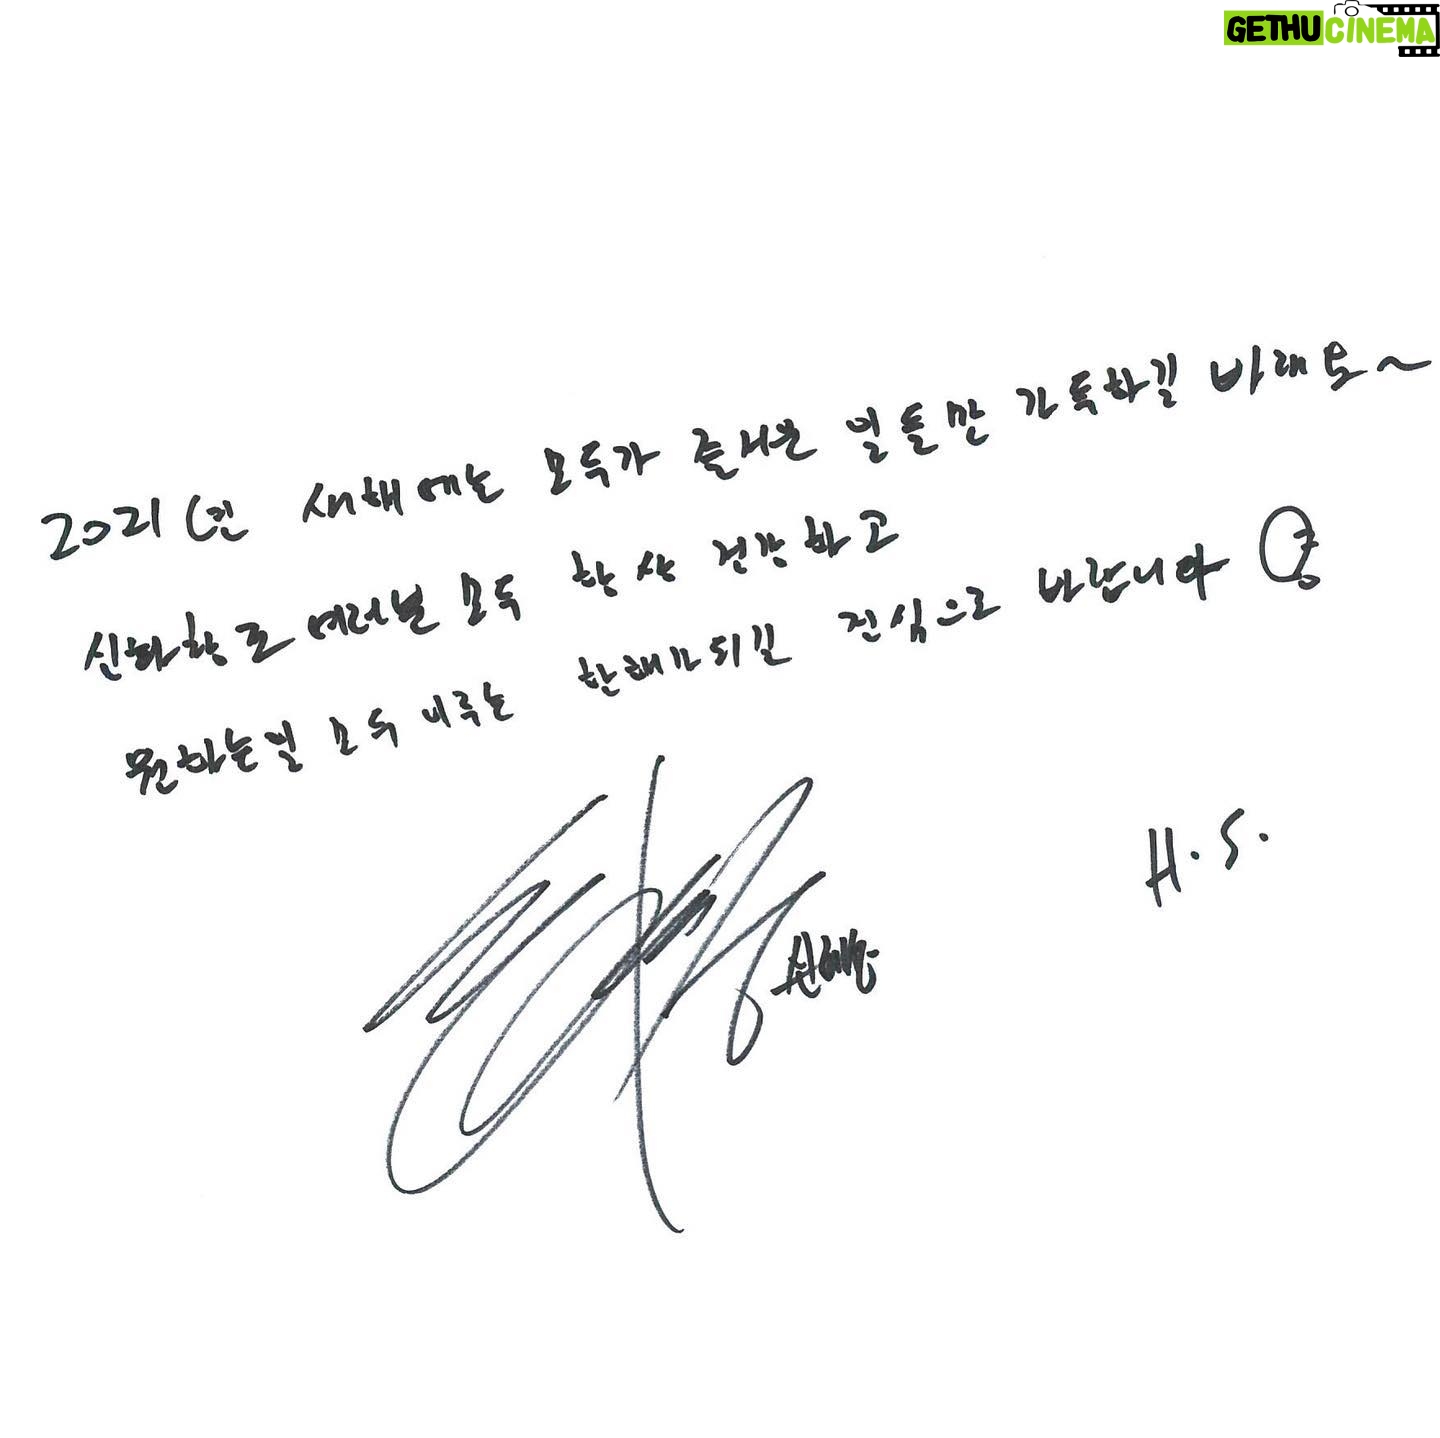 GETHUCINEMA
2021년 새해에는 모두가 즐거운 일들만 가득하길 바래요~
신화창조 여러분 모두 항상 건강하고
원하는일 모두 이루는 한해가되길 진심으로 바랍니다
신혜성
H.S.